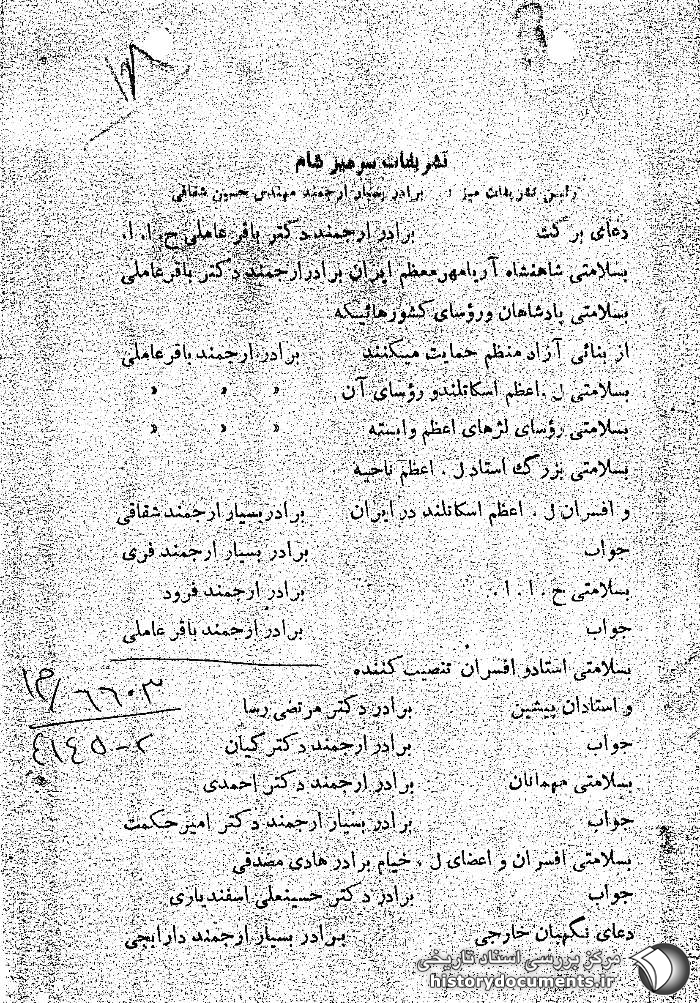 تشریفات سر میز شام
رئیس تشریفات میز : برادر بسیار ارجمند مهندس حسین شقاقی
دعای برکت برادر ارجمند دکتر باقر عاملی ح. ا. ا.
بسلامتی شاهنشاه آریامهر معظم ایران برادر ارجمند دکتر باقر عاملی
بسلامتی پادشاهان و رؤسای کشورهائیکه
از بنائی آزاد منظم حمایت میکنند برادر ارجمند باقر عاملی
بسلامتی ل . اعظم اسکاتلند و رؤسای آن » » »
بسلامتی رؤسای لژهای اعظم وابسته » » »
بسلامتی بزرگ استاد ل . اعظم ناحیه
و افسران ل . اعظم اسکاتلند در ایران برادر بسیار ارجمند شقاقی
جواب برادر بسیار ارجمند فری
بسلامتی ح . ا . ا . برادر ارجمند فرود
جواب برادر ارجمند باقر عاملی
بسلامتی استاد و افسران تنصیب کننده
و استادان پیشین برادر دکتر مرتضی رسا
جواب برادر ارجمند دکتر کیان
بسلامتی مهمانان برادر ارجمند دکتر احمدی
جواب برادر بسیار ارجمند دکتر امیر حکمت
بسلامتی افسران و اعضای ل . خیام برادر هادی مصدقی
جواب برادر دکتر حسینعلی اسفندیاری
دعای نگهبان خارجی برادر بسیار ارجمند دارابجی
مرکز بررسی اسناد تاریخی
historydocuments.ir